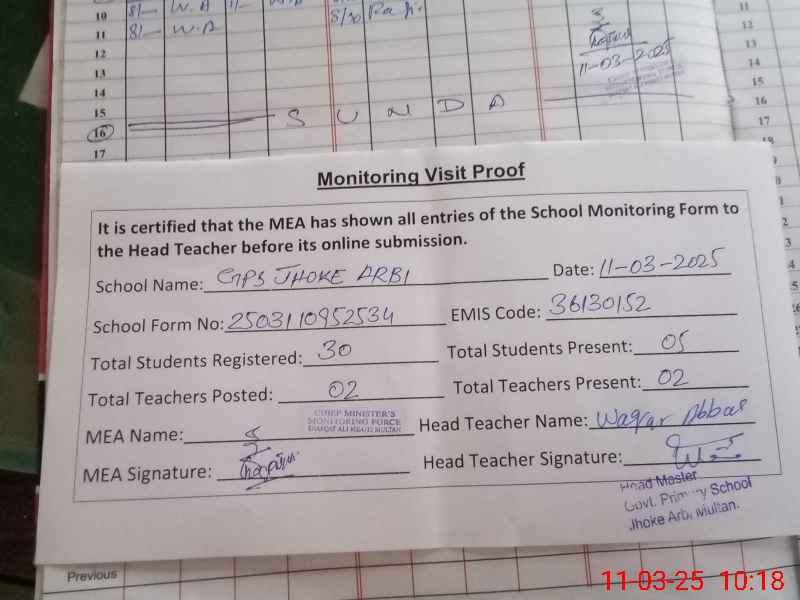 10 8/- W.A 1/-
11 8/- W.A 8/30
12
13
14
15 S U N D A
16
17
11-03-2025
11
12
13
14
15
16
17
Monitoring Visit Proof
It is certified that the MEA has shown all entries of the School Monitoring Form to
the Head Teacher before its online submission.
School Name: GPS JHOKE ARBI Date: 11-03-2025
School Form No: 2503110952534 EMIS Code: 36130152
Total Students Registered: 30 Total Students Present: 05
Total Teachers Posted: 02 Total Teachers Present: 02
CHIEF MINISTER'S
MONITORING FORCE
MEA Name: Head Teacher Name: Waqar Abbas
MEA Signature: Head Teacher Signature:
Head Master
Govt. Primary School
Jhoke Arbi Multan.
Previous
11-03-25 10:18